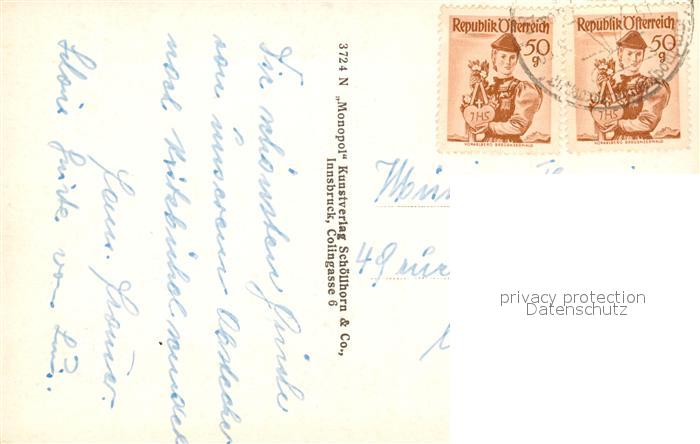 Die schönsten Grüße
von unserem Abstecher
nach Kitzbühel sendet
Fam.
Liebe Grüße von
3724 N „Monopol“ Kunstverlag Schöllhorn & Co.,
Innsbruck, Colingasse 6
Republik Österreich
50
g
JHS
VORARLBERG BREGENZERWALD
Republik Österreich
50
g
JHS
VORARLBERG BREGENZERWALD
privacy protection
Datenschutz